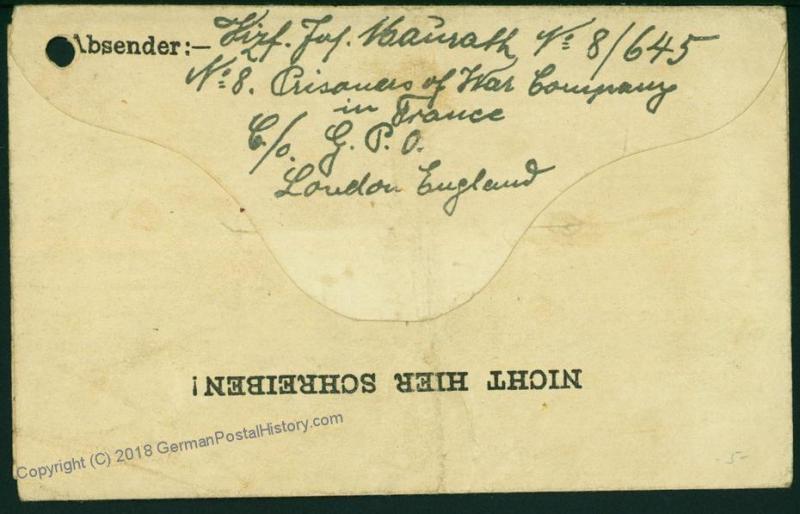 Absender:- Vizf. Jos. Maurath No 8/645
No 8. Prisoners of War Company
in France
C/o. G. P. O.
London England
NICHT HIER SCHREIBEN!
Copyright (C) 2018 GermanPostalHistory.com
-5-